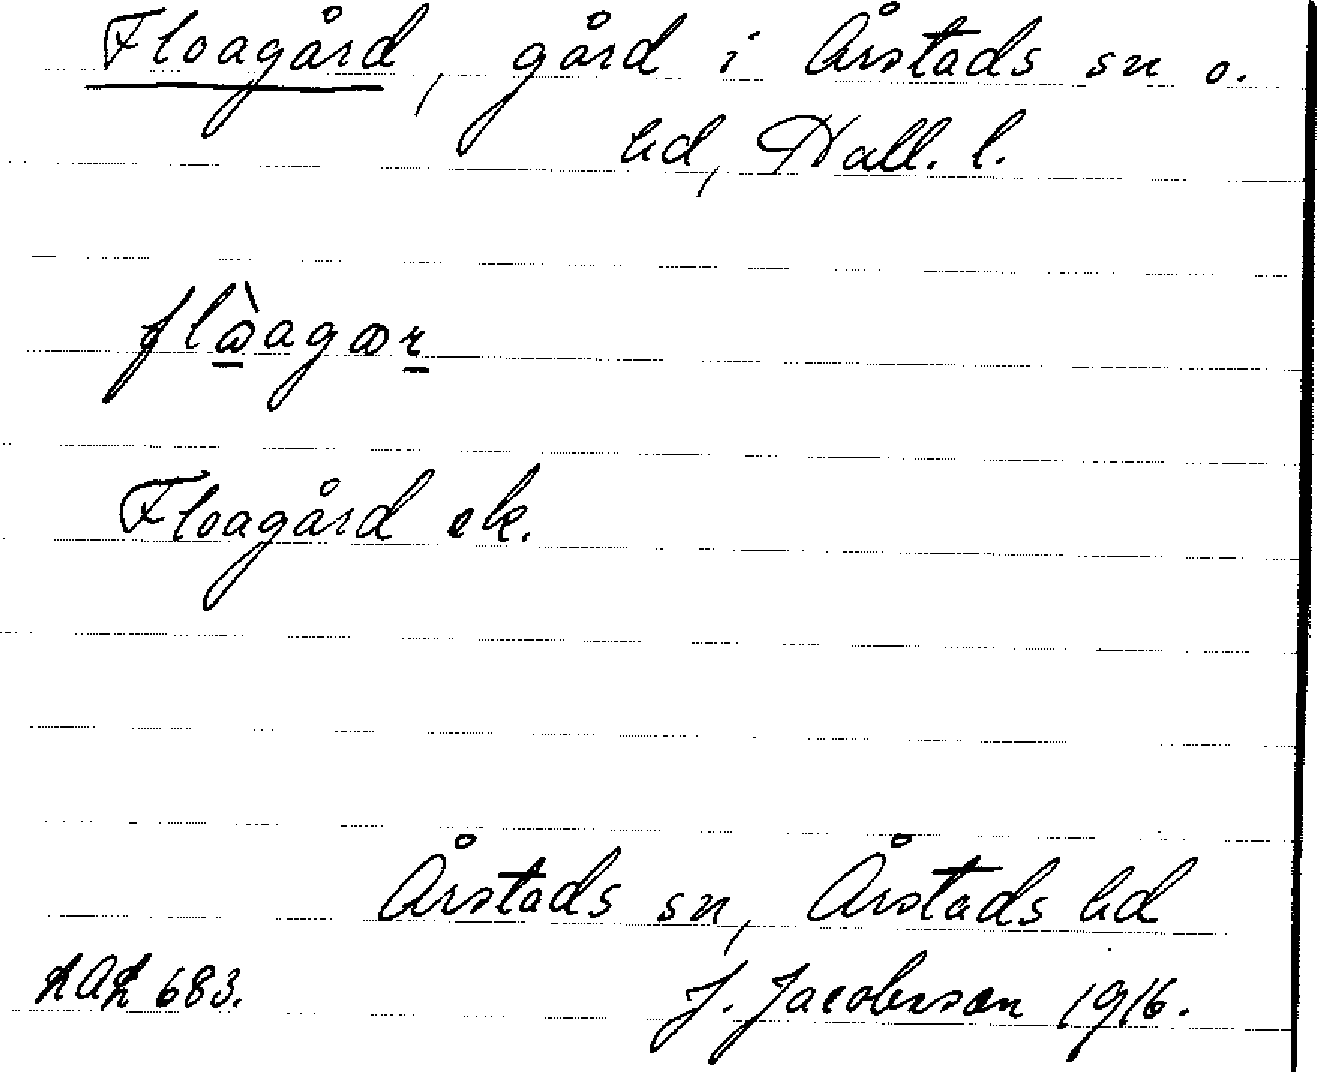 Floagård, gård i Årstads sn o.
hd, Hall. l.
Floagård ek.
Årstads sn, Årstads hd
LAL 683.
J. Jacobsson 1916.